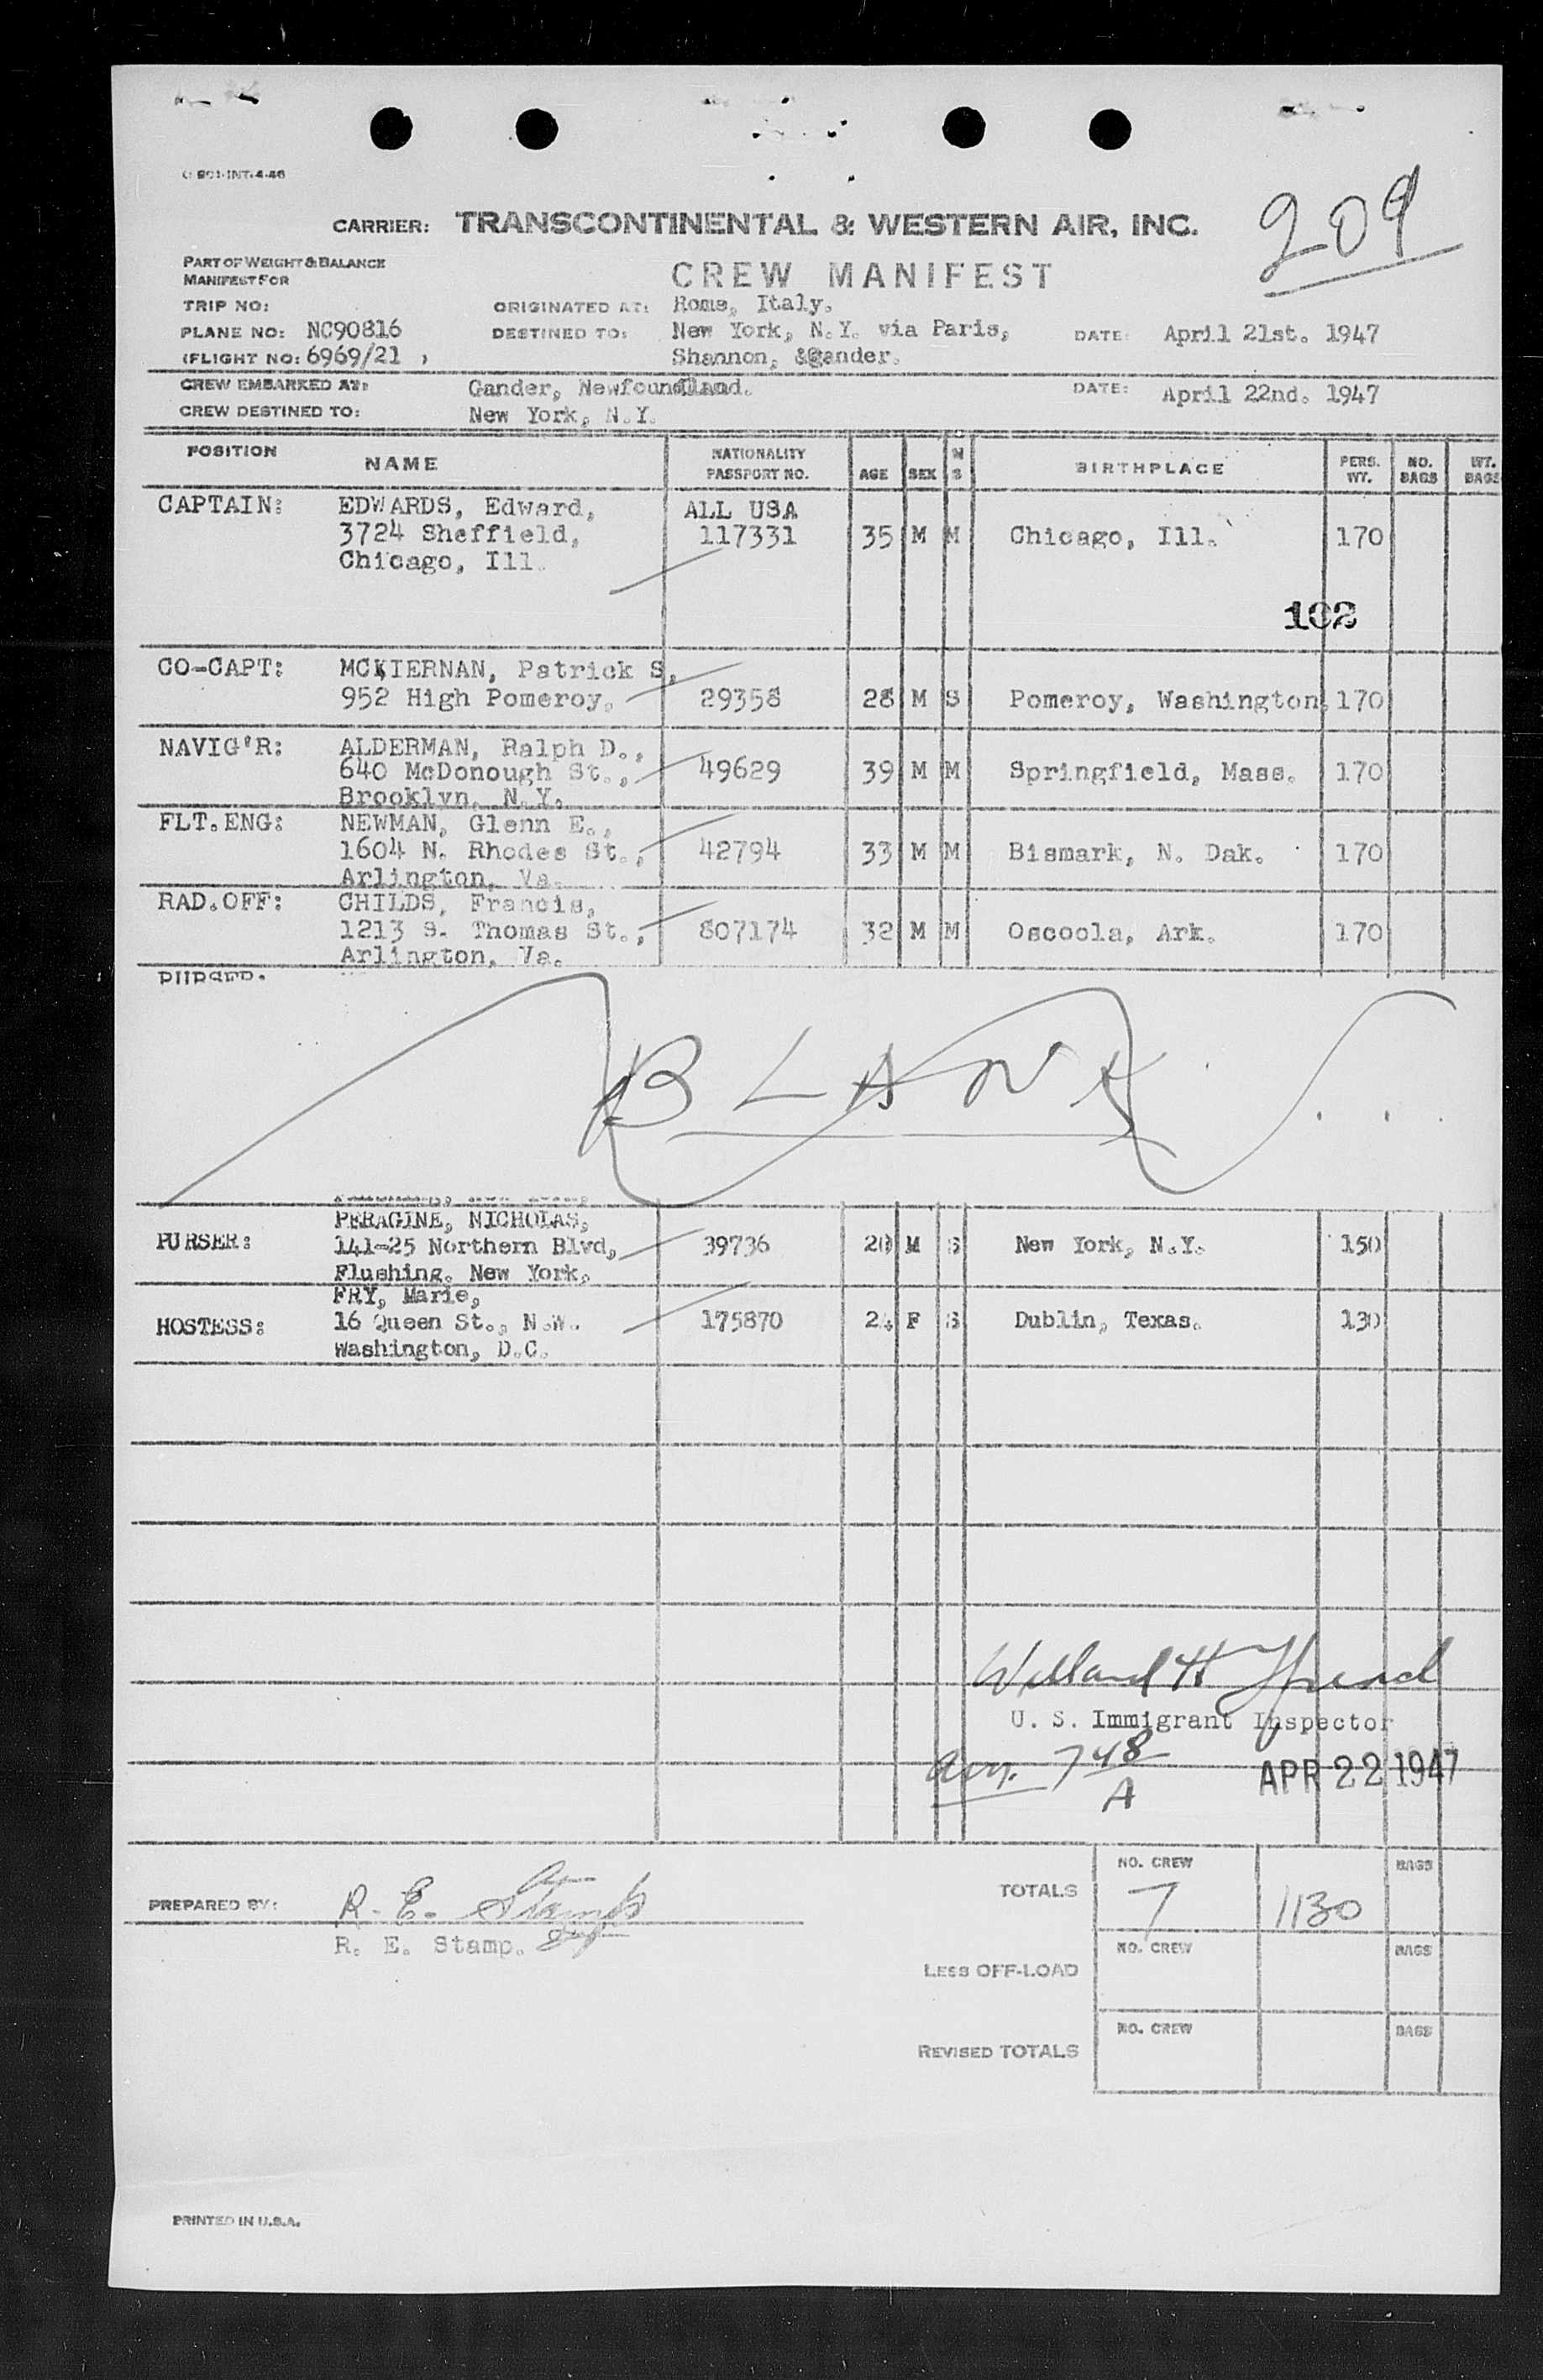 O 801-INT-4-46
209
CARRIER: TRANSCONTINENTAL & WESTERN AIR, INC.
PART OF WEIGHT & BALANCE
MANIFEST FOR
CREW MANIFEST
TRIP NO: ORIGINATED AT: Rome, Italy.
PLANE NO: NC90816 DESTINED TO: New York, N.Y. via Paris, DATE: April 21st. 1947
(FLIGHT NO: 6969/21 ) Shannon, &gander.
CREW EMBARKED AT: Gander, Newfoundland. DATE: April 22nd. 1947
CREW DESTINED TO: New York, N.Y.
POSITION NAME NATIONALITY PASSPORT NO. AGE SEX M S BIRTHPLACE PERS. WT. NO. BAGS WT. BAGS
CAPTAIN: EDWARDS, Edward, ALL USA
3724 Sheffield, 117331 35 M M Chicago, Ill. 170
Chicago, Ill.
102
CO-CAPT: MCKIERNAN, Patrick S,
952 High Pomeroy, 29358 28 M S Pomeroy, Washington, 170
NAVIG'R: ALDERMAN, Ralph D.,
640 McDonough St., 49629 39 M M Springfield, Mass. 170
Brooklyn, N.Y.
FLT.ENG: NEWMAN, Glenn E.,
1604 N. Rhodes St., 42794 33 M M Bismark, N. Dak. 170
Arlington, Va.
RAD.OFF: CHILDS, Francis,
1213 S. Thomas St., 807174 32 M M Oscoola, Ark. 170
Arlington, Va.
PURSER:
BLANK
PERAGINE, NICHOLAS,
PURSER: 141-25 Northern Blvd, 39736 20 M S New York, N.Y. 150
Flushing. New York,
FRY, Marie,
HOSTESS: 16 Queen St., N.W. 175870 24 F S Dublin, Texas. 130
Washington, D.C.
U. S. Immigrant Inspector
arr. 7 48 A
APR 22 1947
PREPARED BY: R. E. Stamp
R. E. Stamp.
TOTALS NO. CREW 7 1130 BAGS
LESS OFF-LOAD NO. CREW BAGS
REVISED TOTALS NO. CREW BAGS
PRINTED IN U.S.A.